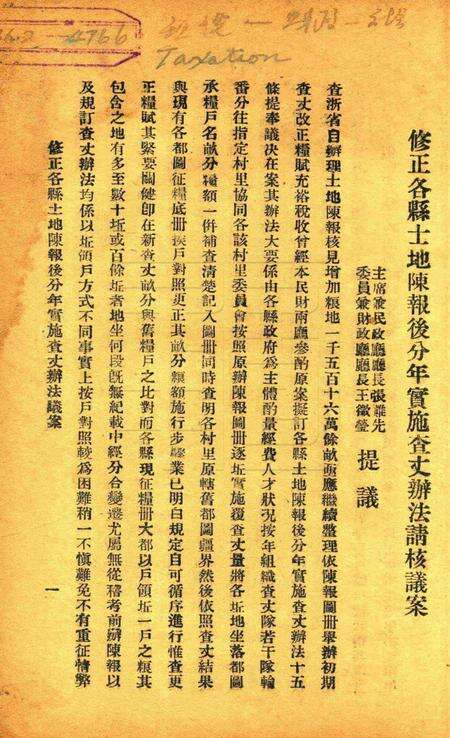 Taxation
修正各縣土地陳報後分年實施查丈辦法請核議案
主席兼民政廳廳長張難先
委員兼財政廳廳長王徵瑩
提議
查浙省自辦理土地陳報核見增加糧地一千五百十六萬餘畝亟應繼續整理依陳報圖冊舉辦初期
查丈改正糧賦充裕稅收曾經本民財兩廳參酌原案擬訂各縣土地陳報後分年實施查丈辦法十五
條提奉議決在案其辦法大要係由各縣政府爲主體酌量經費人才狀况按年組織查丈隊若干隊輪
番分往指定村里協同各該村里委員會按照原辦陳報圖冊逐坵實施覆查丈量將各坵地坐落都圖
承糧戶名畝分糧額一倂補查清楚記入圖冊同時查明各村里原轄舊都圖疆界然後依照查丈結果
與現有各都圖征糧底冊挨戶對照更正其畝分糧額施行步驟業已明白規定自可循序進行惟查更
正糧賦其緊要關鍵卽在新查丈畝分與舊糧戶之比對而各縣現征糧冊大都以戶領坵一戶之糧其
包含之地有多至數十坵或百餘坵者地坐何段旣無紀載中經分合變遷尤屬無從稽考前辦陳報以
及規訂查丈辦法均係以坵領戶方式不同事實上按戶對照較爲困難稍一不愼難免不有重征情弊
修正各縣土地陳報後分年實施查丈辦法議案
一